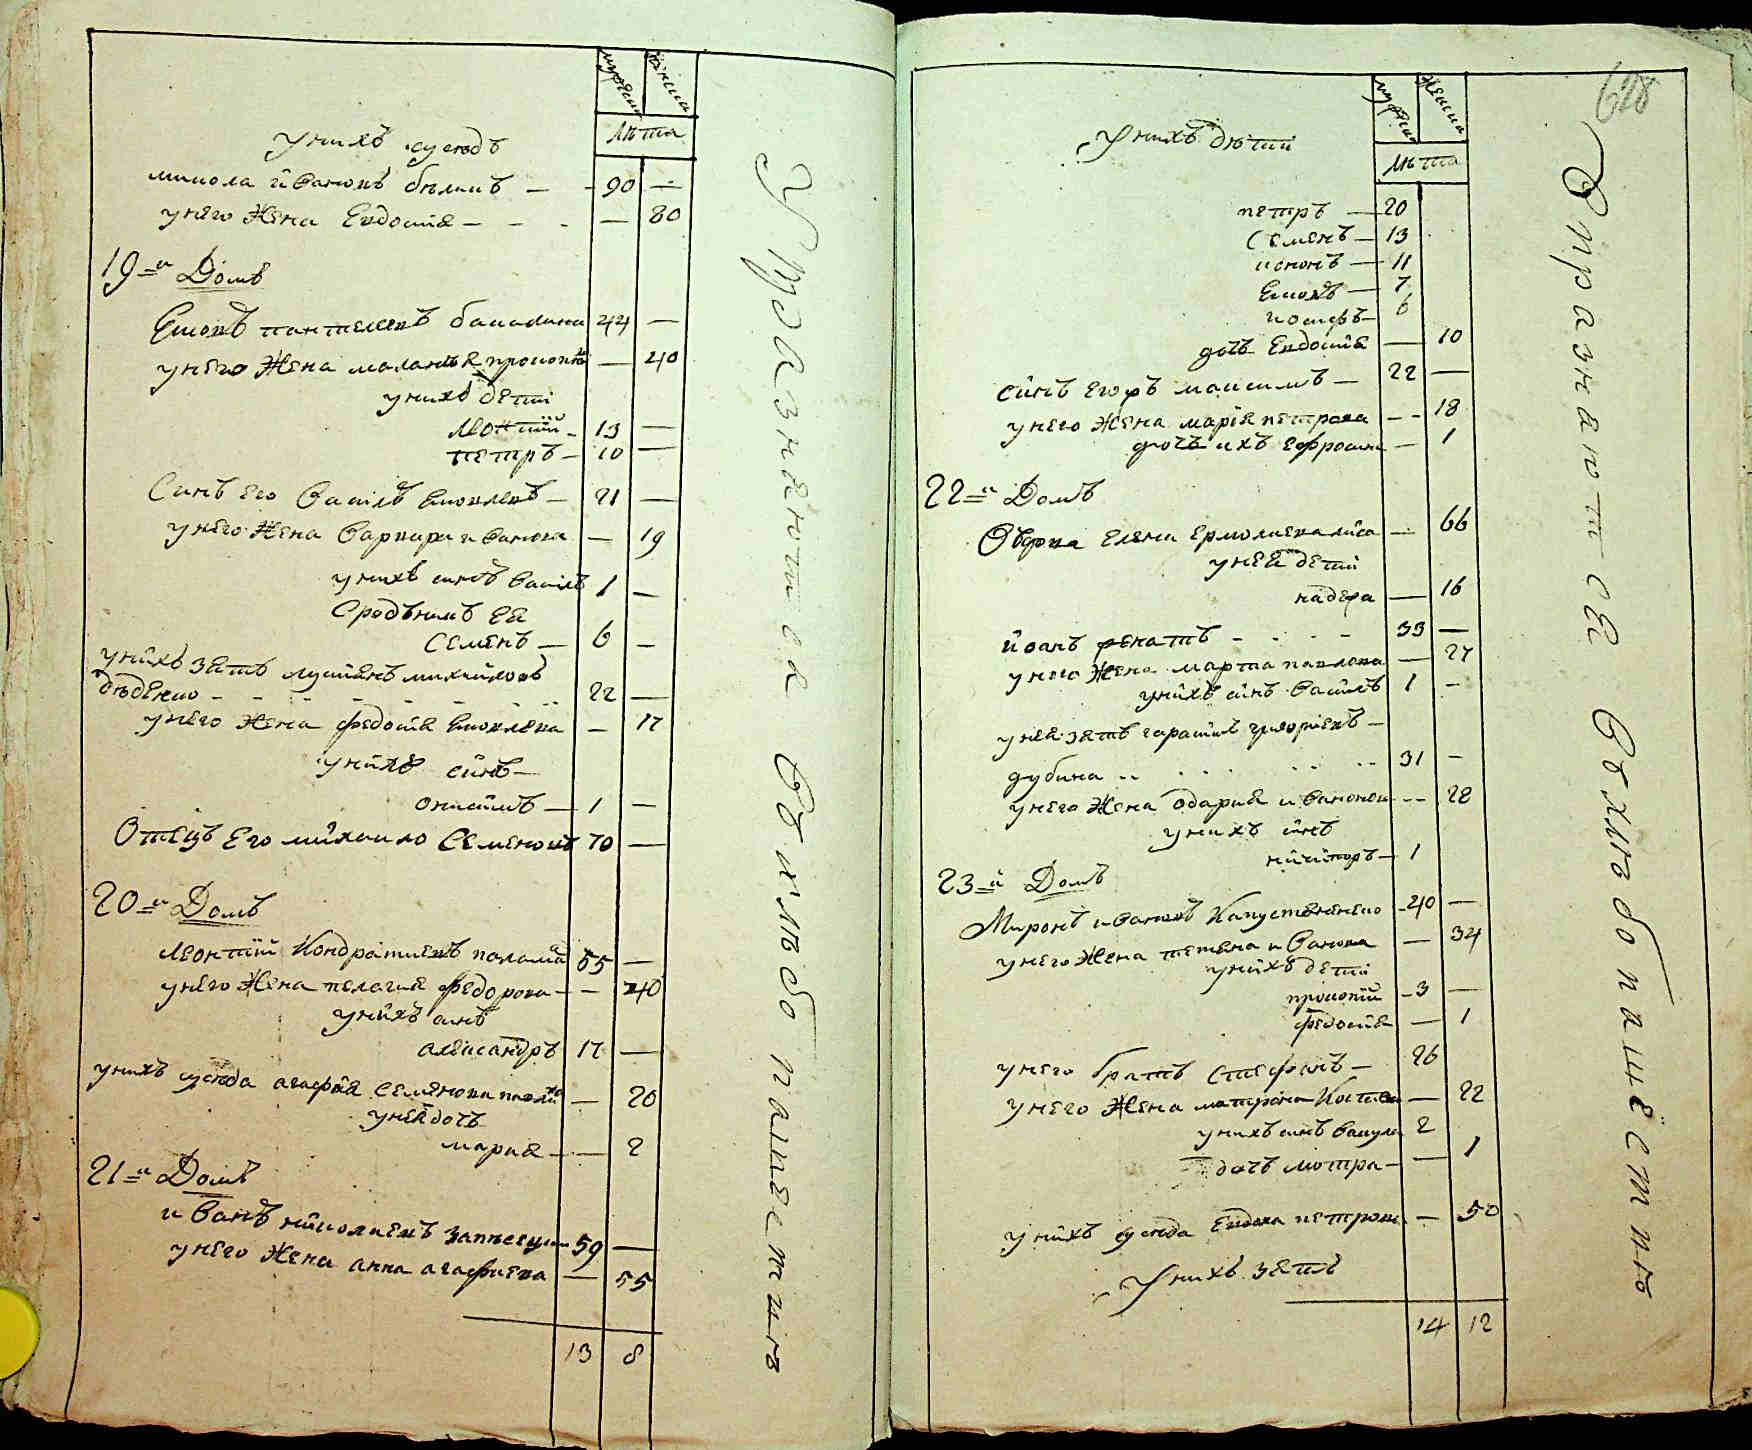 мужеска женска
лѣта
у нихъ сусѣдъ
микола ивановъ бѣликъ — 90 —
у него жена Евдокия — — 80
19-й Домъ
Яковъ пантелеевъ 44 —
у него жена маланья прокопѣ — 40
у нихъ дети
леонтий 13 —
петръ 10 —
Синъ его Василь яковлевъ — 21 —
у него жена варвара иванова — 19
у нихъ синъ василь 1 —
Семенъ — 6 —
у нихъ зять лукиянъ михайловъ
дѣденко 22 —
у него жена федосия яковлева — 17
у нихъ синъ —
онисимъ — 1 —
Отецъ его михаило Семеновъ 70 —
20-й Домъ
леонтий кондратиевъ 55 —
у него жена пелагия федорова — — 40
у нихъ синъ
александръ 17 —
у нихъ сусѣда агафия семенова — 20
у ней дочь
мария — — 2
21-й Домъ
иванъ николаевъ 59 —
у него жена анна агафиева — 55
13 8
Упразняются въ хлѣбопашествѣ
628
мужеска женска
лѣта
у нихъ дѣти
петръ — 20
Семенъ — 13
11
Яковъ — 7
иосифъ — 6
дочь Евдокия — 10
синъ егоръ максимъ — 22 —
у него жена мария петрова — — 18
дочь ихъ ефросиня — 1
22-й Домъ
Вдова елена ермолаева — 66
у ней дети
— 16
иванъ 33 —
у него жена марта павлова — 27
у нихъ синъ василь 1 —
у нея зять герасимъ григориевъ —
дубина 31 —
у него жена одария — — 28
у нихъ синъ
никипоръ — 1
23-й Домъ
Миронъ ивановъ Капустяненко — 40 —
у него жена тетяна иванова — 34
у нихъ дети
прокопий — 3 —
федосия — 1
у него братъ стефанъ — 26
у него жена матрона — 22
у нихъ синъ вакула 2
дочь мотря — — 1
у нихъ сусѣда Евдокия петрова — 50
у нихъ зять
14 12
Упразнаются въ хлѣбопашествѣ